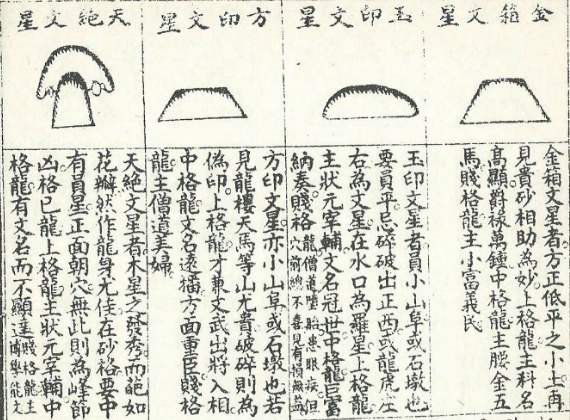 金箱文星
金箱文星者方正低平之小土再
見貴砂相助為妙上格龍主科名
高顯爵祿萬鍾中格龍主腰金五
馬賤格龍主小富義民
玉印文星
玉印文星者員小山阜或石墩也
要員平忌碎破出正西或龍虎左
右為文星在水口為羅星上格龍
主狀元宰輔文名冠世中格龍巨富
納奏賤格龍僧道墮胎患眼疾但穴前總不喜見有損無益
方印文星
方印文星亦小山阜或石墩也若
見龍樓天馬等山尤貴破碎則為
偽印上格龍才兼文武出將入相
中格龍文名遠播方面重臣賤格
龍主僧道美婦
天絶文星
天絶文星者木星之發秀而葩如
花瓣然作龍身尤佳在砂格要中
有員星正面朝穴無此則為峰節
凶格已龍上格龍主狀元宰輔中
格龍有文名而不顯達賤格龍主博學能文